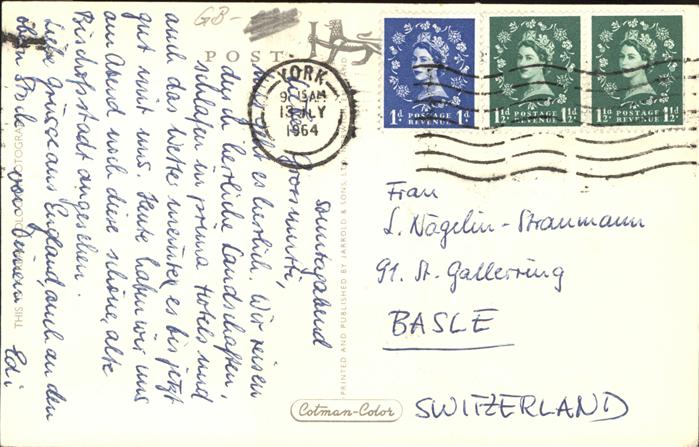 GB-
POST
YORK
9 15 AM
13 JLY
1964
1d POSTAGE REVENUE 1d
1½d POSTAGE REVENUE 1½d
1½d POSTAGE REVENUE 1½d
Sonntagabend
Grossmutti,
geht es herrlich. Wir reisen
durch herrliche Landschaften,
schlafen in prima Hotels und
auch das Wetter meinte es bis jetzt
gut mit uns. Heute haben wir uns
am Abend noch diese schöne, alte
Bischofsstadt angesehen.
Liebe Grüsse aus England, auch an den
oberen Stock von Deinem Edi
Frau
L. Nägelin-Straumann
91. St. Gallerring
BASLE
SWITZERLAND
PRINTED AND PUBLISHED BY JARROLD & SONS, LT
Cotman-Color
THIS